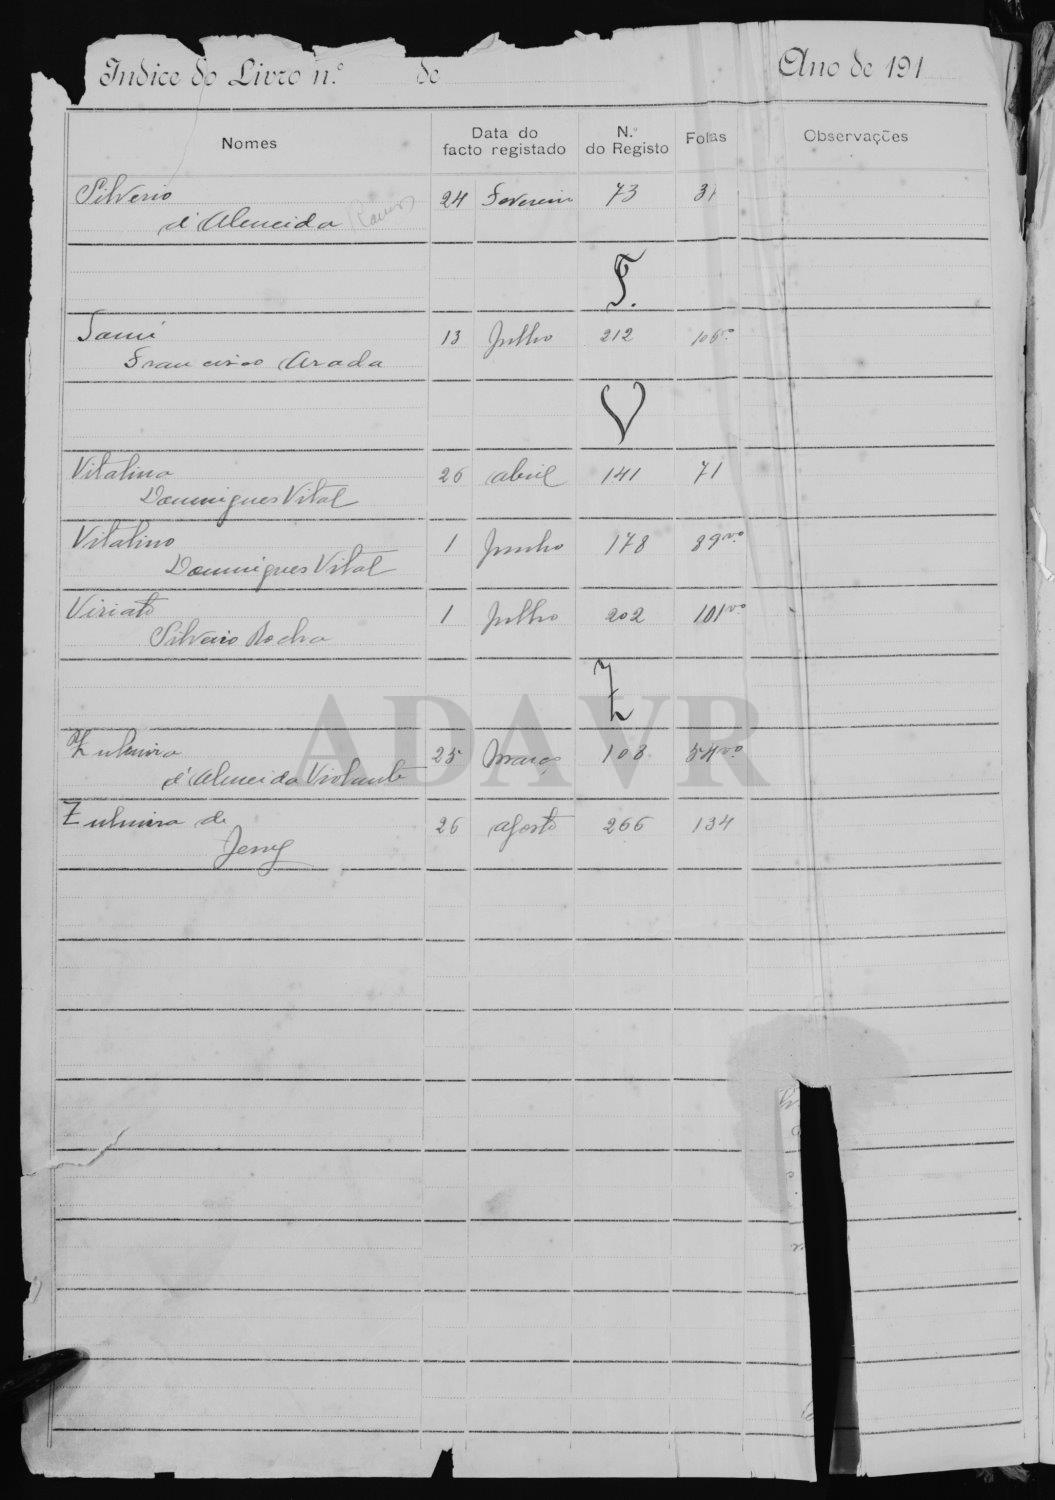 Indice do Livro n.º de Ano de 191
Nomes Data do facto registado N.º do Registo Folhas Observações
Silverio 24 Fevereiro 73 31
d'Almeida Ramos
T.
Tomé 13 Julho 212 106vº
Francisco Arada
V
Vitalina 26 abril 141 71
Domingues Vital
Vitalino 1 Junho 178 89vº
Domingues Vital
Viriato 1 Julho 202 101vº
Silverio Rocha
Z
Zulmira 25 março 108 54vº
d'Almeida Violante
Zulmira de 26 agosto 266 134
Jesus
ADAVR